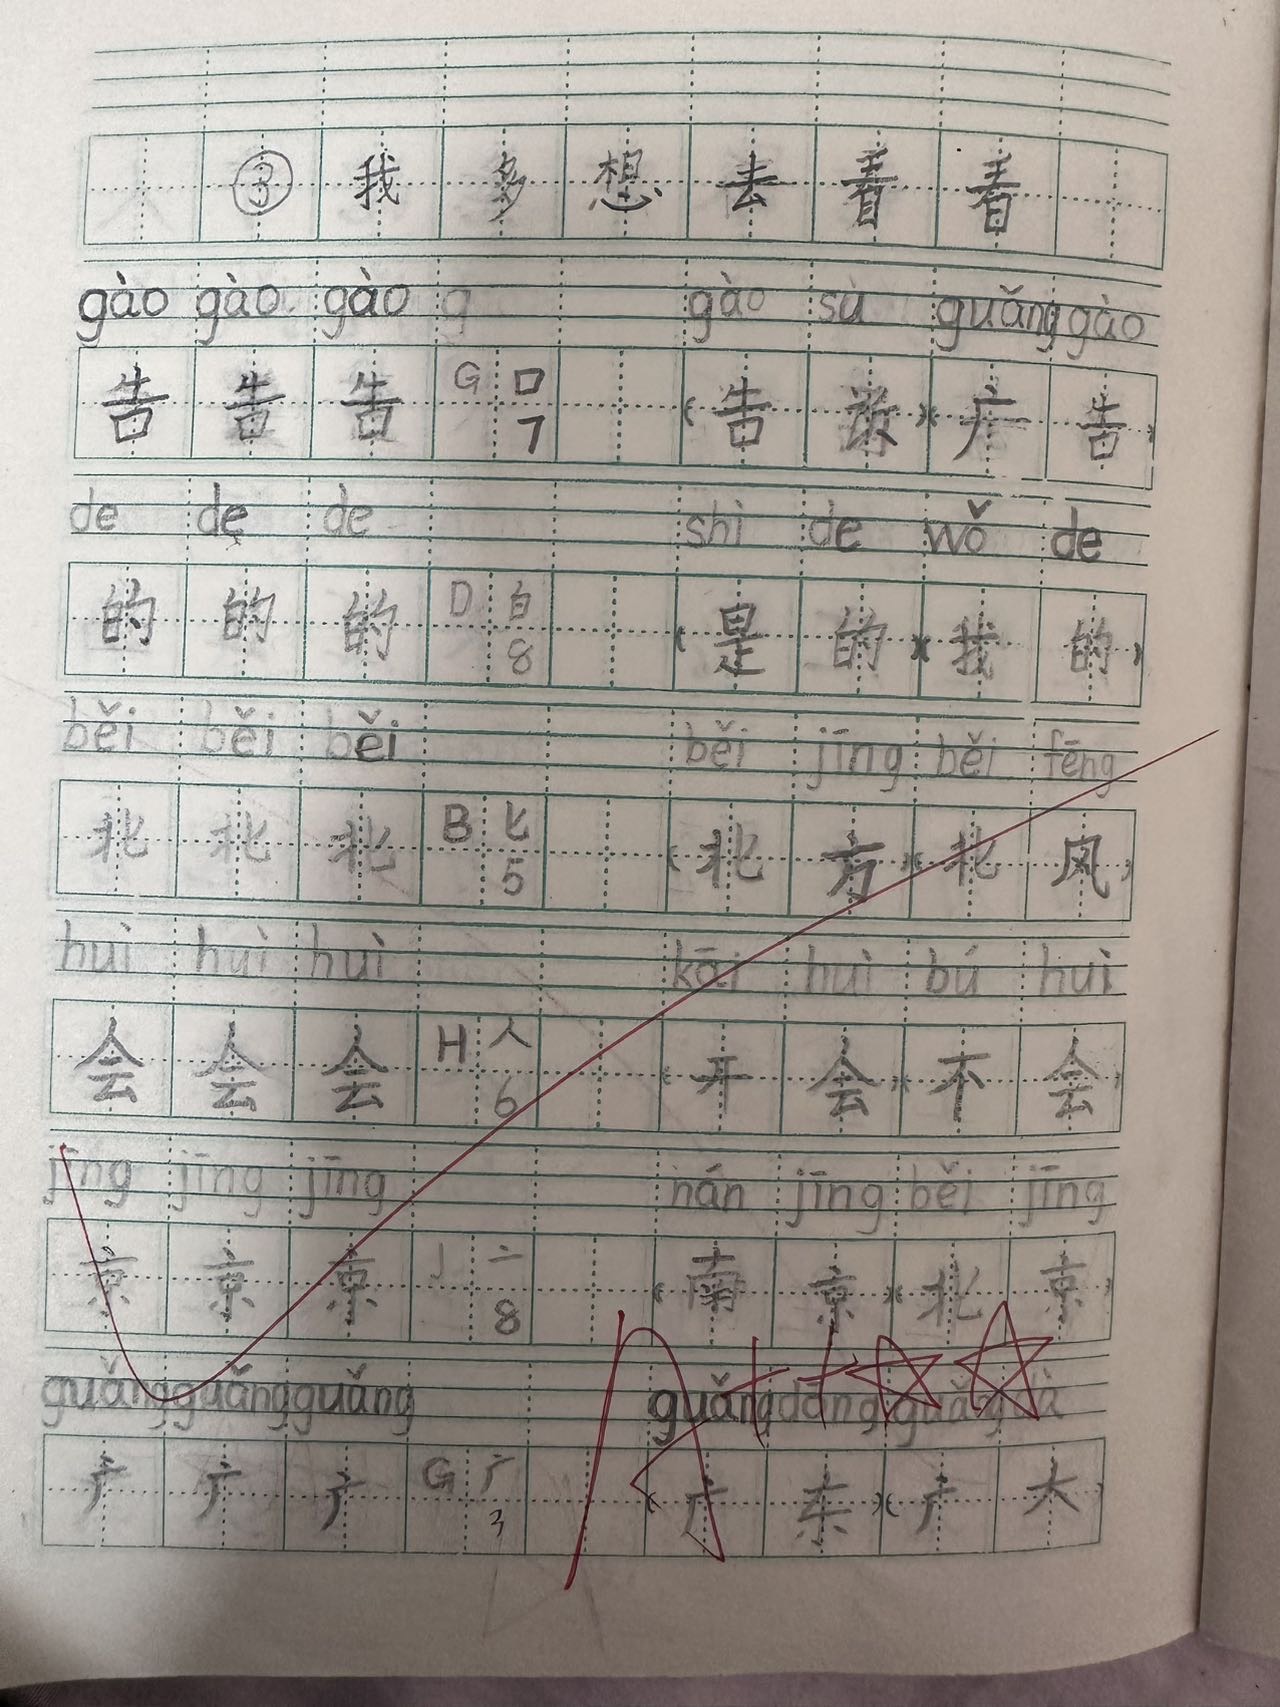 ③我多想去看看
gào gào gào g gào sù guǎng gào
告告告 G 口 7 (告诉)(广告)
de de de shì de wǒ de
的的的 D 白 8 (是的)(我的)
běi běi běi běi jīng běi fēng
北北北 B 匕 5 (北方)(北风)
huì huì huì kāi huì bú huì
会会会 H 人 6 (开会)(不会)
jīng jīng jīng nán jīng běi jīng
京京京 J 亠 8 (南京)(北京)
guǎng guǎng guǎng guǎng dōng guǎng dà
广广广 G 广 3 (广东)(广大)
A++☆☆